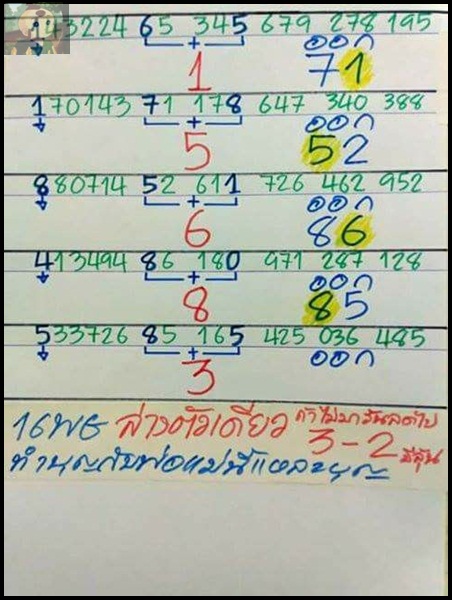 143224 65 345 679 278 195
+ ออก
1 71
170143 71 178 647 340 388
+ ออก
5 52
880714 52 611 726 462 952
+ ออก
6 86
413494 86 180 971 287 128
+ ออก
8 85
533726 85 165 425 036 485
+ ออก
3
16พย ล่างตัวเดียว ถ้าไม่มาวันลดไป
3-2 มีลุ้น
ทำบุญกับพ่อแม่นี่แหละบุญ